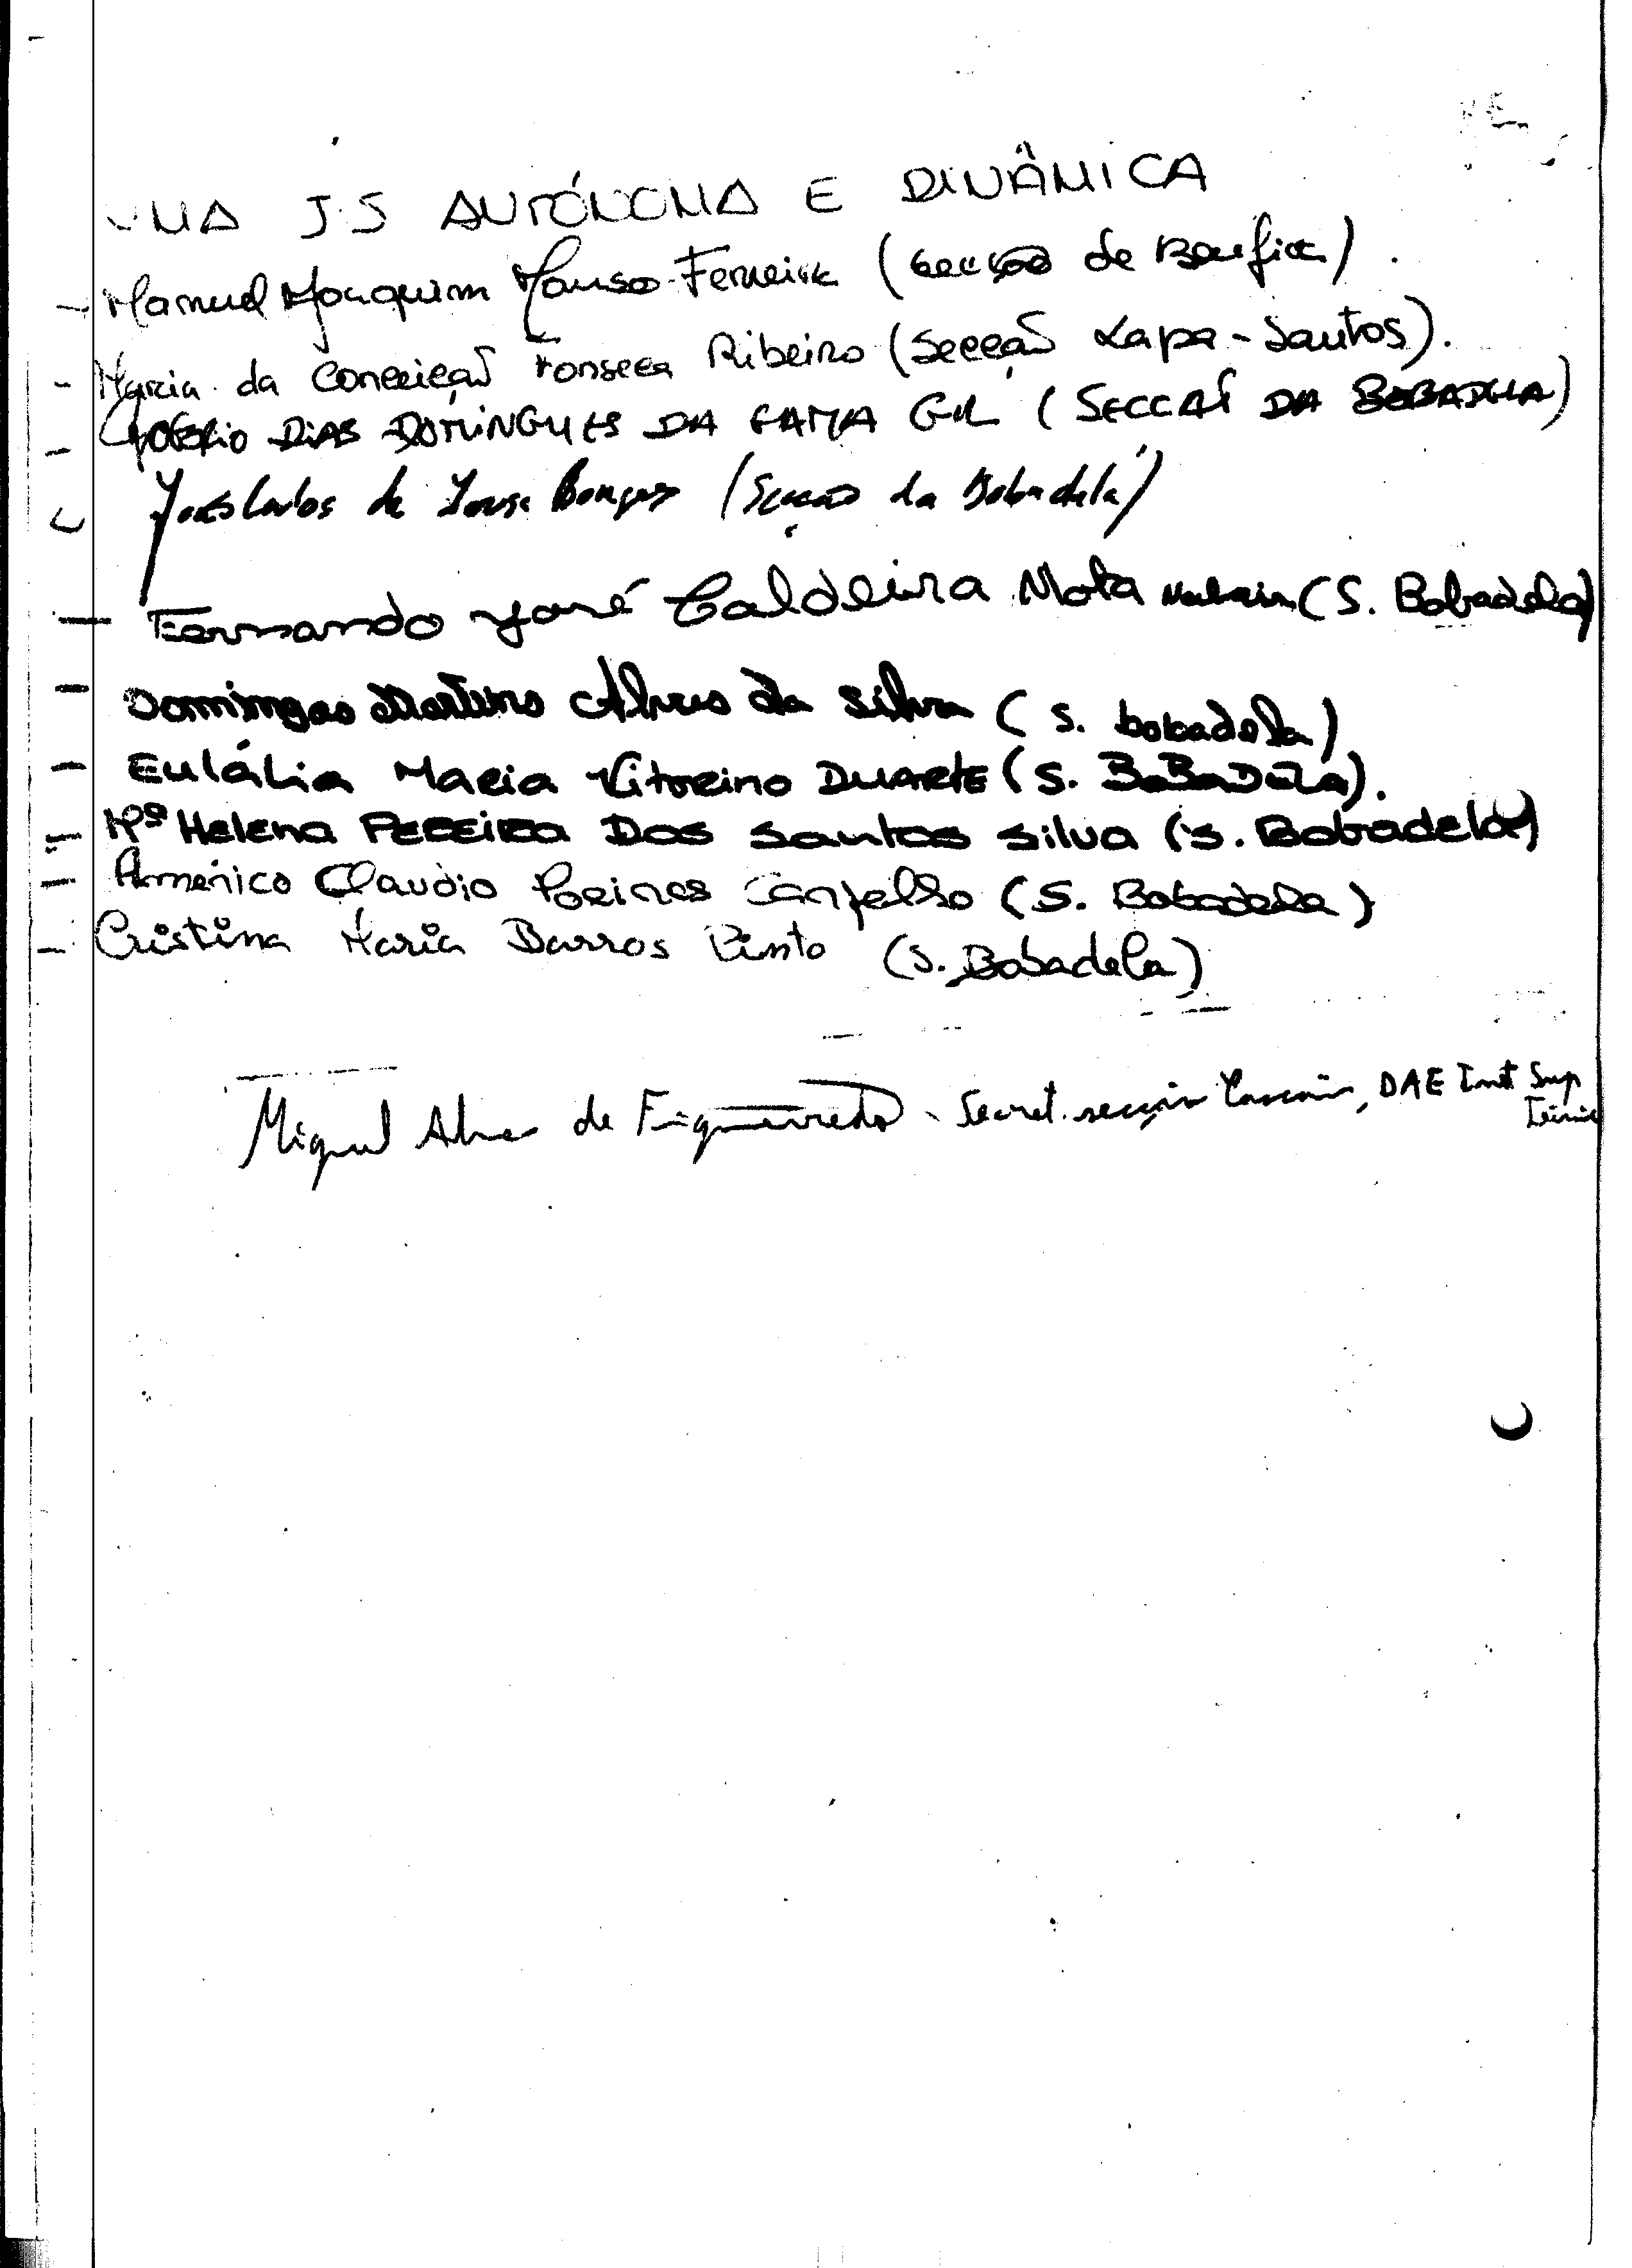 UMA JS AUTÓNOMA E DINÂMICA
- Manuel Joaquim Afonso Ferreira (Secção de Benfica).
- Maria da Conceição Fonseca Ribeiro (Secção Lapa-Santos).
- ROGÉRIO DIAS DOMINGUES DA GAMA GIL (SECCÃO DA BOBADELA)
José Carlos de Sousa Borges (Secção da Bobadela)
- Fernando José Caldeira Mota (S. Bobadela)
- Domingos Martins Alves da Silva (S. bobadela)
- Eulália Maria Vitorino DUARTE (S. BOBADELA).
- Mª Helena PEREIRA Dos Santos Silva (S. Bobadela)
- Américo Claudio Carvalho (S. Bobadela)
- Cristina Maria Barros Pinto (S. Bobadela)
Miguel Alves de Figueiredo - Secret. secção Cascais, DAE Inst Sup